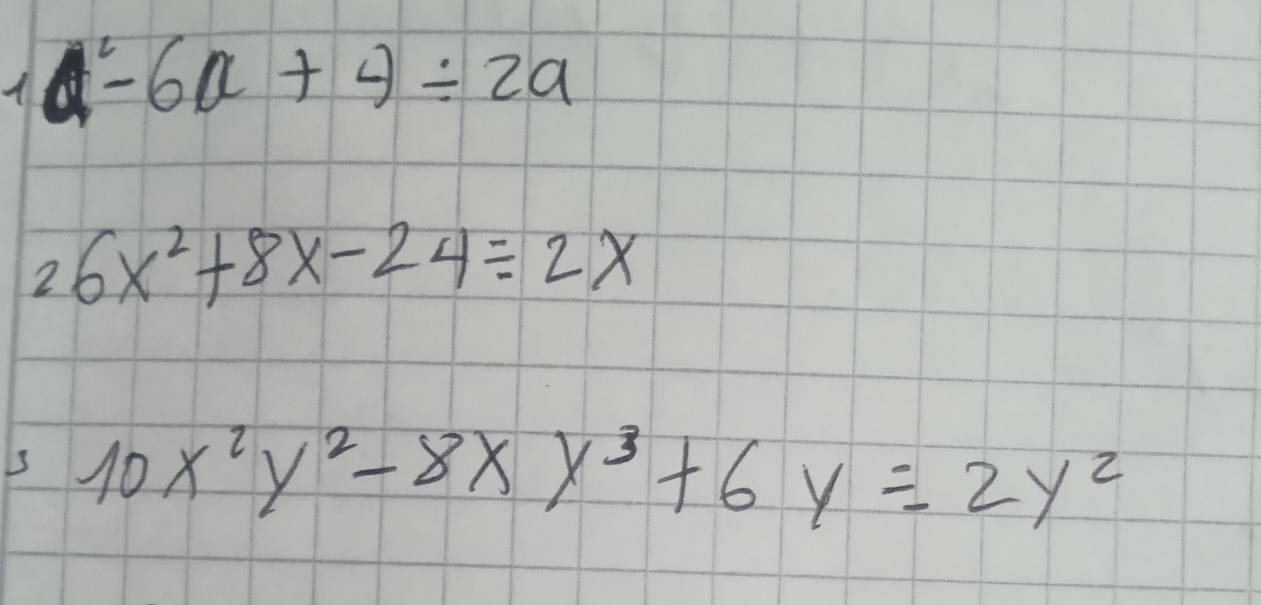 1 a² - 6a + 4 ÷ 2a
2 6x² + 8x - 24 ÷ 2x
3 10x²y² - 8xy³ + 6y ÷ 2y²